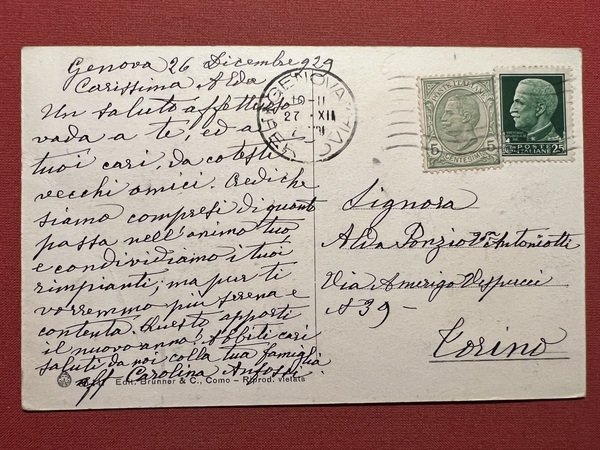 Genova 26 Dicembre 929
Carissima Alda
Un saluto affettuoso
vada a te, ed a
tuoi cari, da cotesti
vecchi amici. Credi che
siamo compresi di quanto
passa nell'animo tuo,
e condividiamo i tuoi
rimpianti; ma pur ti
vorremmo più serena e
contenta. Questo apporti
il nuovo anno! Abbiti cari
saluti da noi colla tua famiglia
aff Carolina Anfossi
Edit. Brunner & C., Como – Riprod. vietata
GENOVA
19-11
27 XII
POSTE ITALIANE
25
5 5
CENTESIMI
Signora
Alda Ponzio Va Antoniotti
Via Amerigo Vespucci
N 39 -
Torino